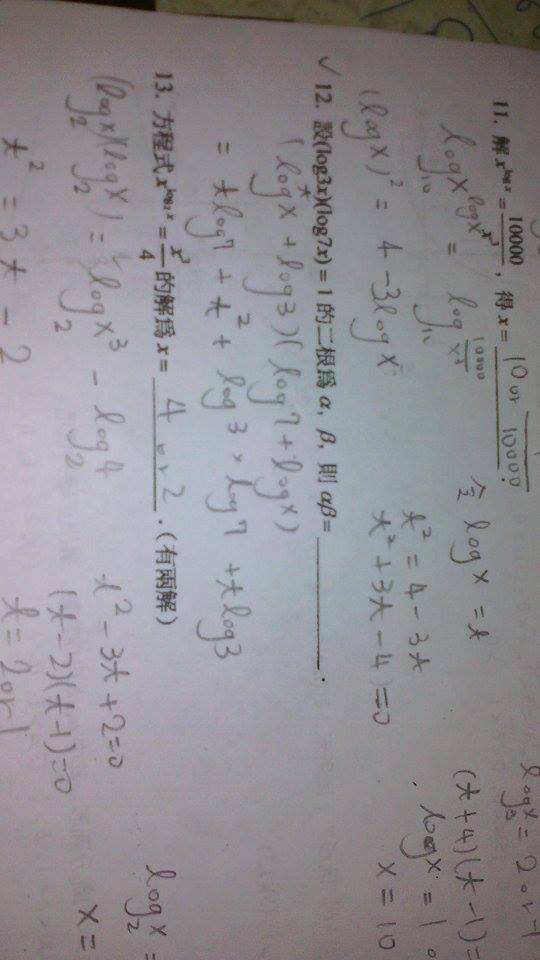 11. 解 x^{log x} = 10000/x³ , 得 x = 10 or 1/10000 .
log₁₀x^{log x} = log₁₀ 10000/x³ 令 log x = t
(log x)² = 4 - 3log x t² = 4 - 3t
t² + 3t - 4 = 0
(t+4)(t-1) =
log x = 1
x = 10
log₃x = 2 or -1
✓ 12. 設(log3x)(log7x) = 1 的二根為 α, β, 則 αβ = ________ .
(log x + log 3)(log 7 + log x)
= t log 7 + t² + log 3 × log 7 + t log 3
13. 方程式 x^{log₂ x} = x³/4 的解為 x = 4 or 2 . (有兩解)
(log₂x)(log₂x) = log₂x³ - log₂4 t² - 3t + 2 = 0
t² = 3t - 2 (t-2)(t-1) = 0
t = 2 or 1
log₂x =
x =